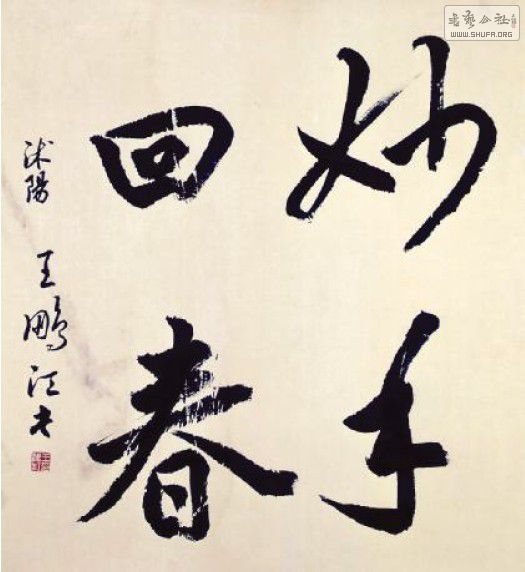 妙手
回春
沭陽 王鵬江书
书艺公社
WWW.SHUFA.ORG